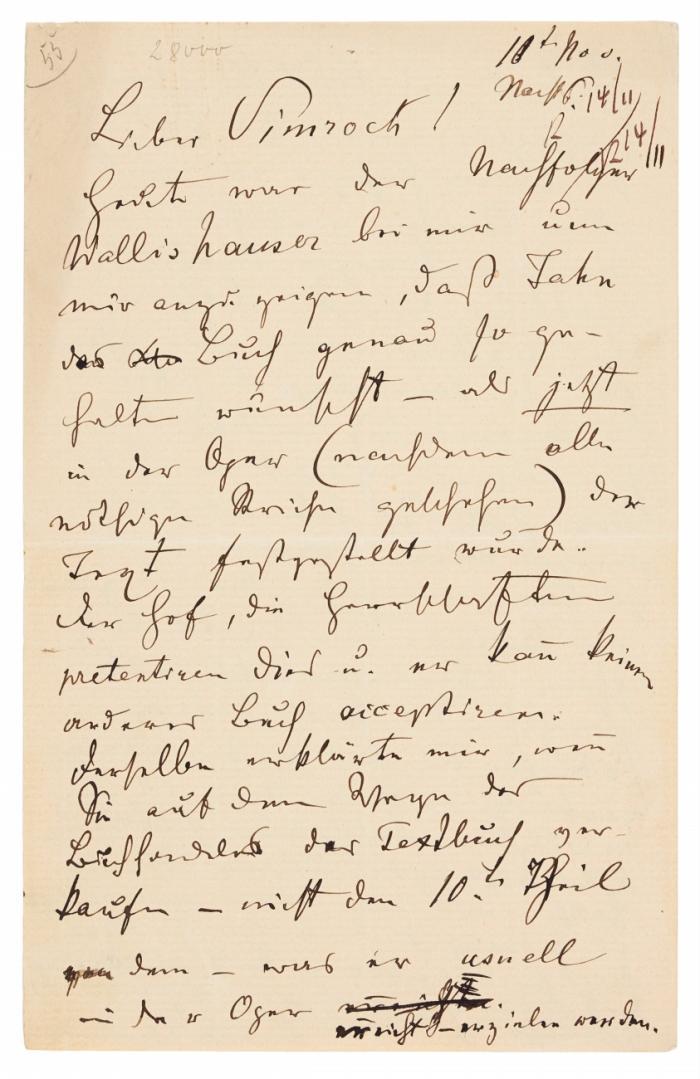 53
28000
11t Nov.
Nachts
14/11
Lieber Simrock!
214/11
Heute war der Nachfolger
Wallishauser bei mir um
mir anzuzeigen, daß Jahn
das Buch genau so ge-
halten wünscht – als jetzt
in der Oper (nachdem alle
nöthigen Striche geschehen) der
Text festgestellt wurde.
Der Hof, die Herrschaften
pretentiren dies u. er kan̄ keinen
anderes Buch acceptiren.
Derselbe erklärte mir, wen̄
Sie auf dem Wege des
Buchhandels das Textbuch ver-
kaufen – nicht den 10.ten Theil
von dem – was er
in der Oper
erreicht – erzielen werden.